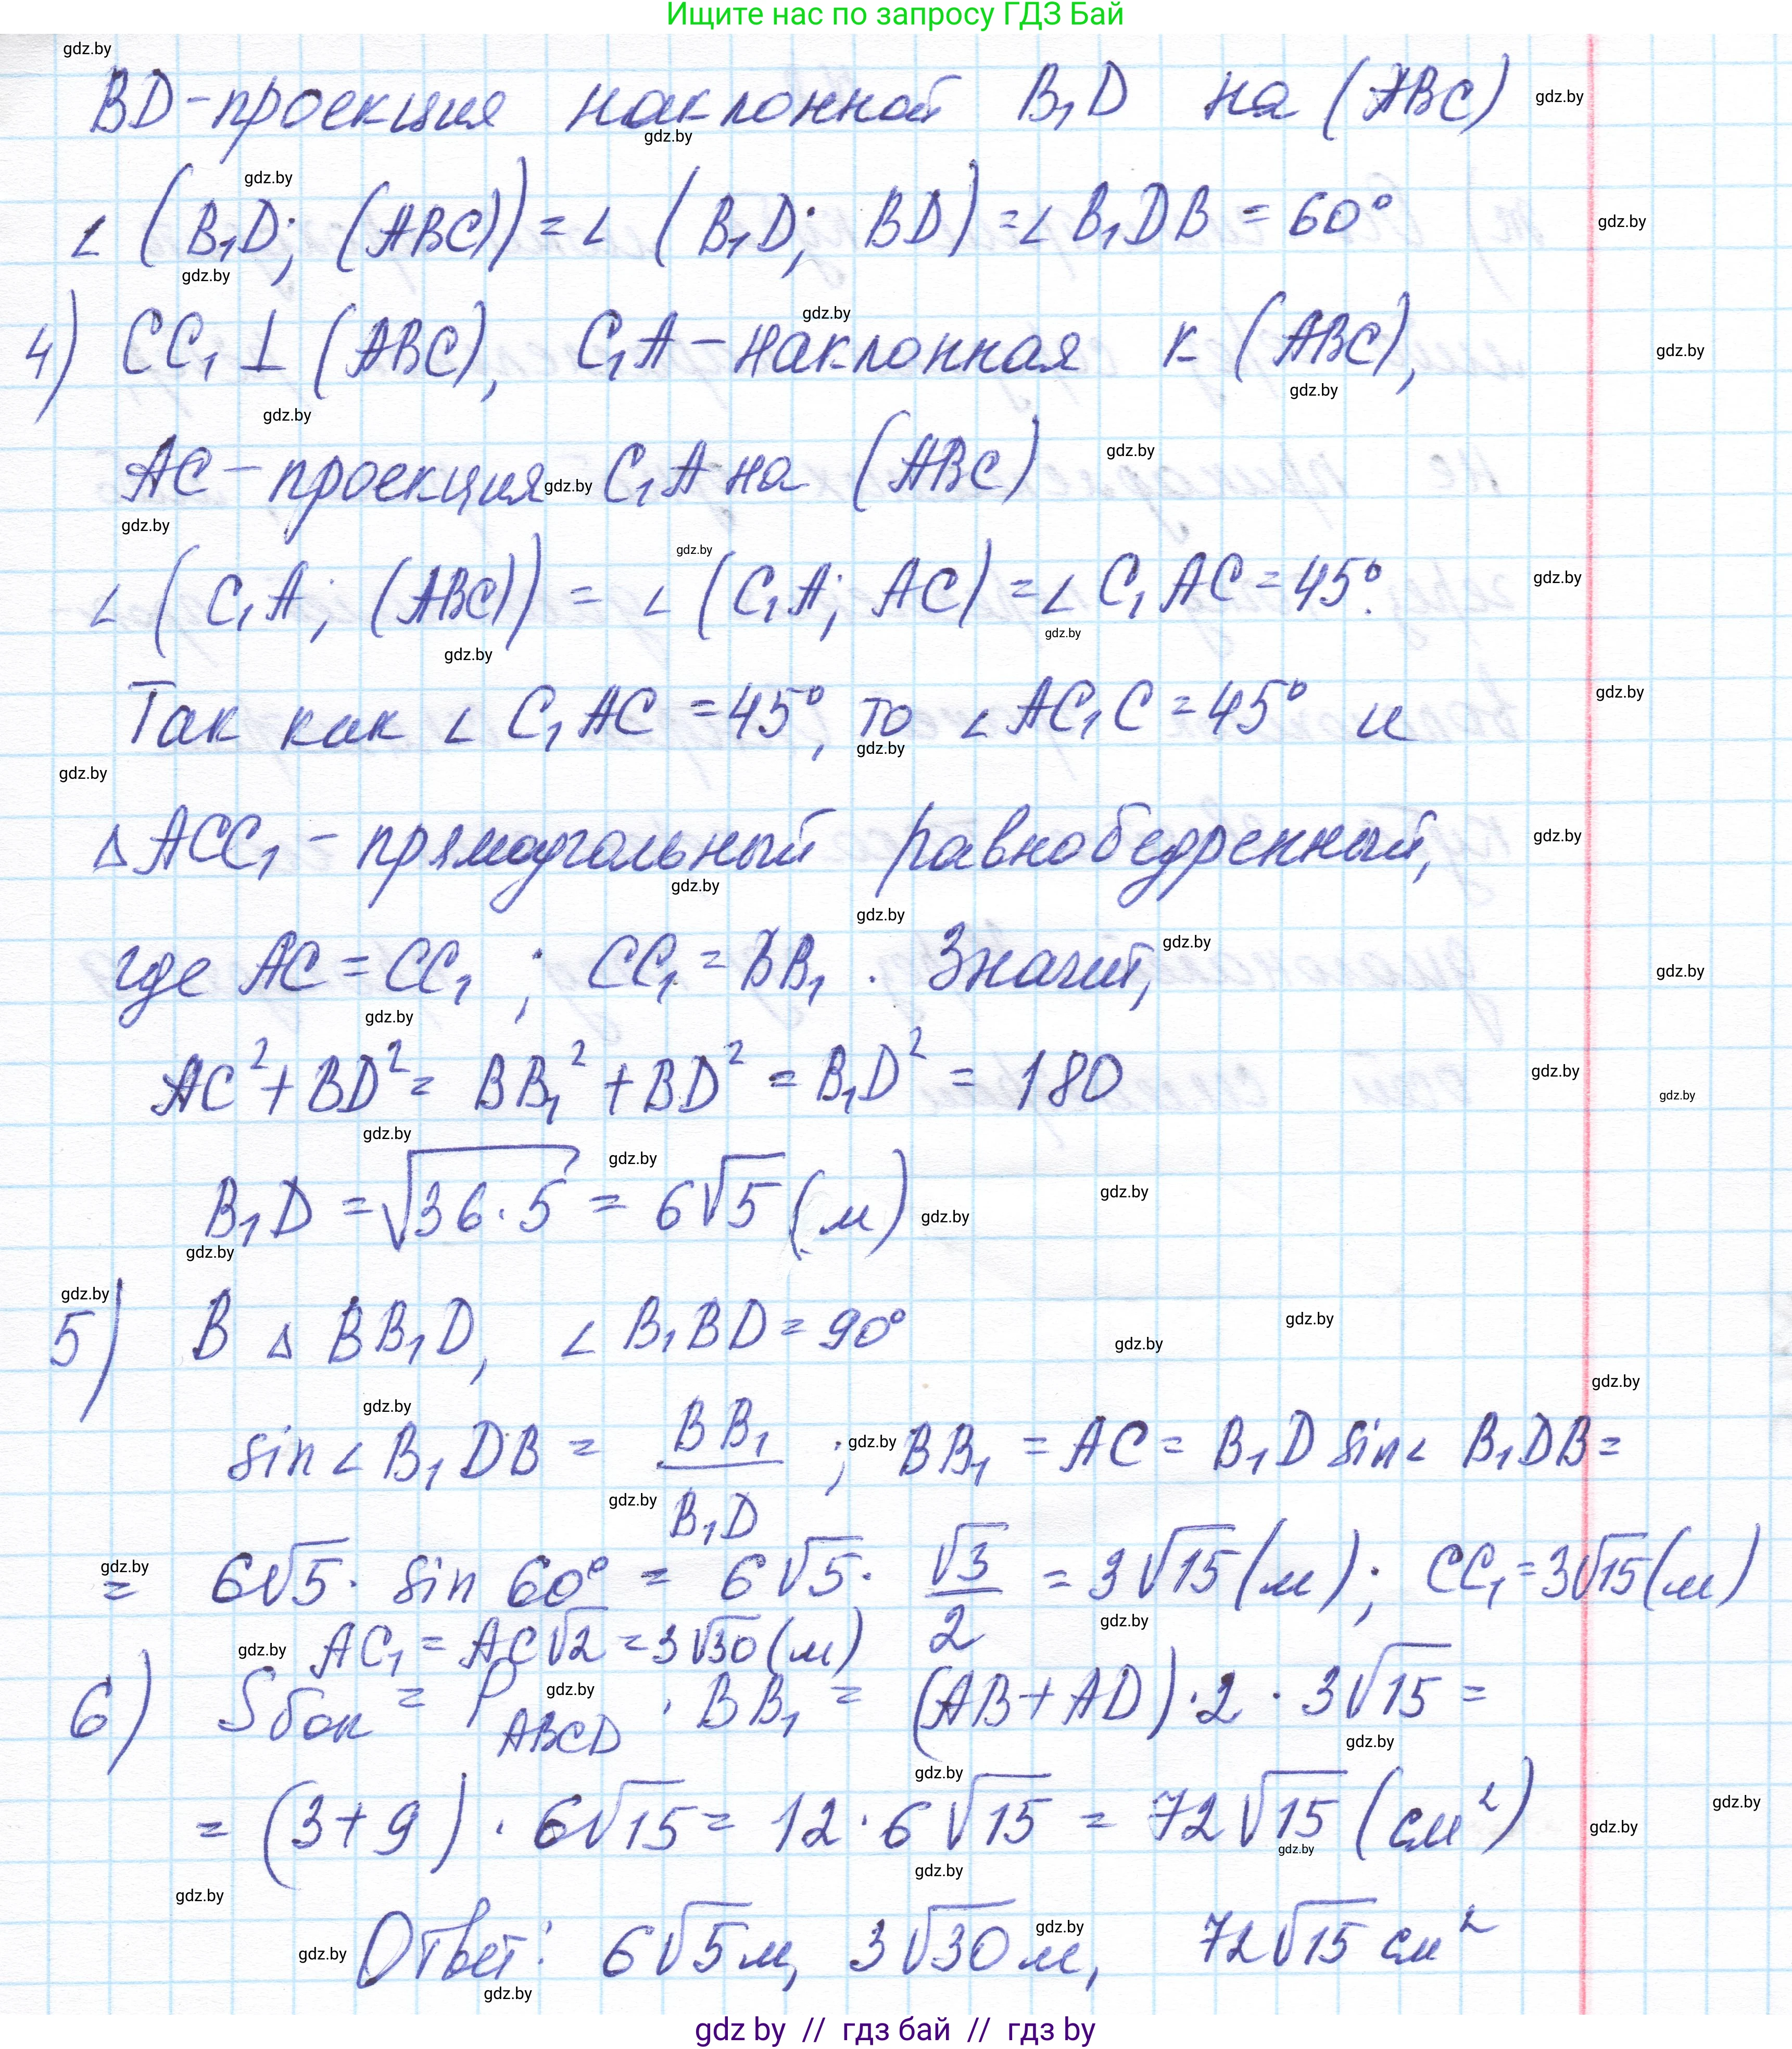 Ищите нас по запросу ГДЗ Бай
BD-проекция наклонной B₁D на (ABC)
∠(B₁D; (ABC)) = ∠(B₁D; BD) = ∠B₁DB = 60°
4) CC₁ ⊥ (ABC), C₁A – наклонная к (ABC),
AC – проекция C₁A на (ABC)
∠(C₁A; (ABC)) = ∠(C₁A; AC) = ∠C₁AC = 45°.
Так как ∠C₁AC = 45°, то ∠AC₁C = 45° и
△ACC₁ – прямоугольный равнобедренный,
где AC = CC₁ ; CC₁ = BB₁ . Значит,
AC² + BD² = BB₁² + BD² = B₁D² = 180
B₁D = √(36·5) = 6√5 (м)
5) В △BB₁D, ∠B₁BD = 90°
sin∠B₁DB = BB₁/B₁D ; BB₁ = AC = B₁D sin∠B₁DB =
= 6√5 · sin 60° = 6√5 · √3/2 = 3√15 (м); CC₁ = 3√15 (м)
AC₁ = AC√2 = 3√30 (м)
6) Sбок = P_ABCD · BB₁ = (AB + AD)·2 · 3√15 =
= (3+9) · 6√15 = 12 · 6√15 = 72√15 (см²)
Ответ: 6√5 м, 3√30 м, 72√15 см²
gdz by // гдз бай // гдз by